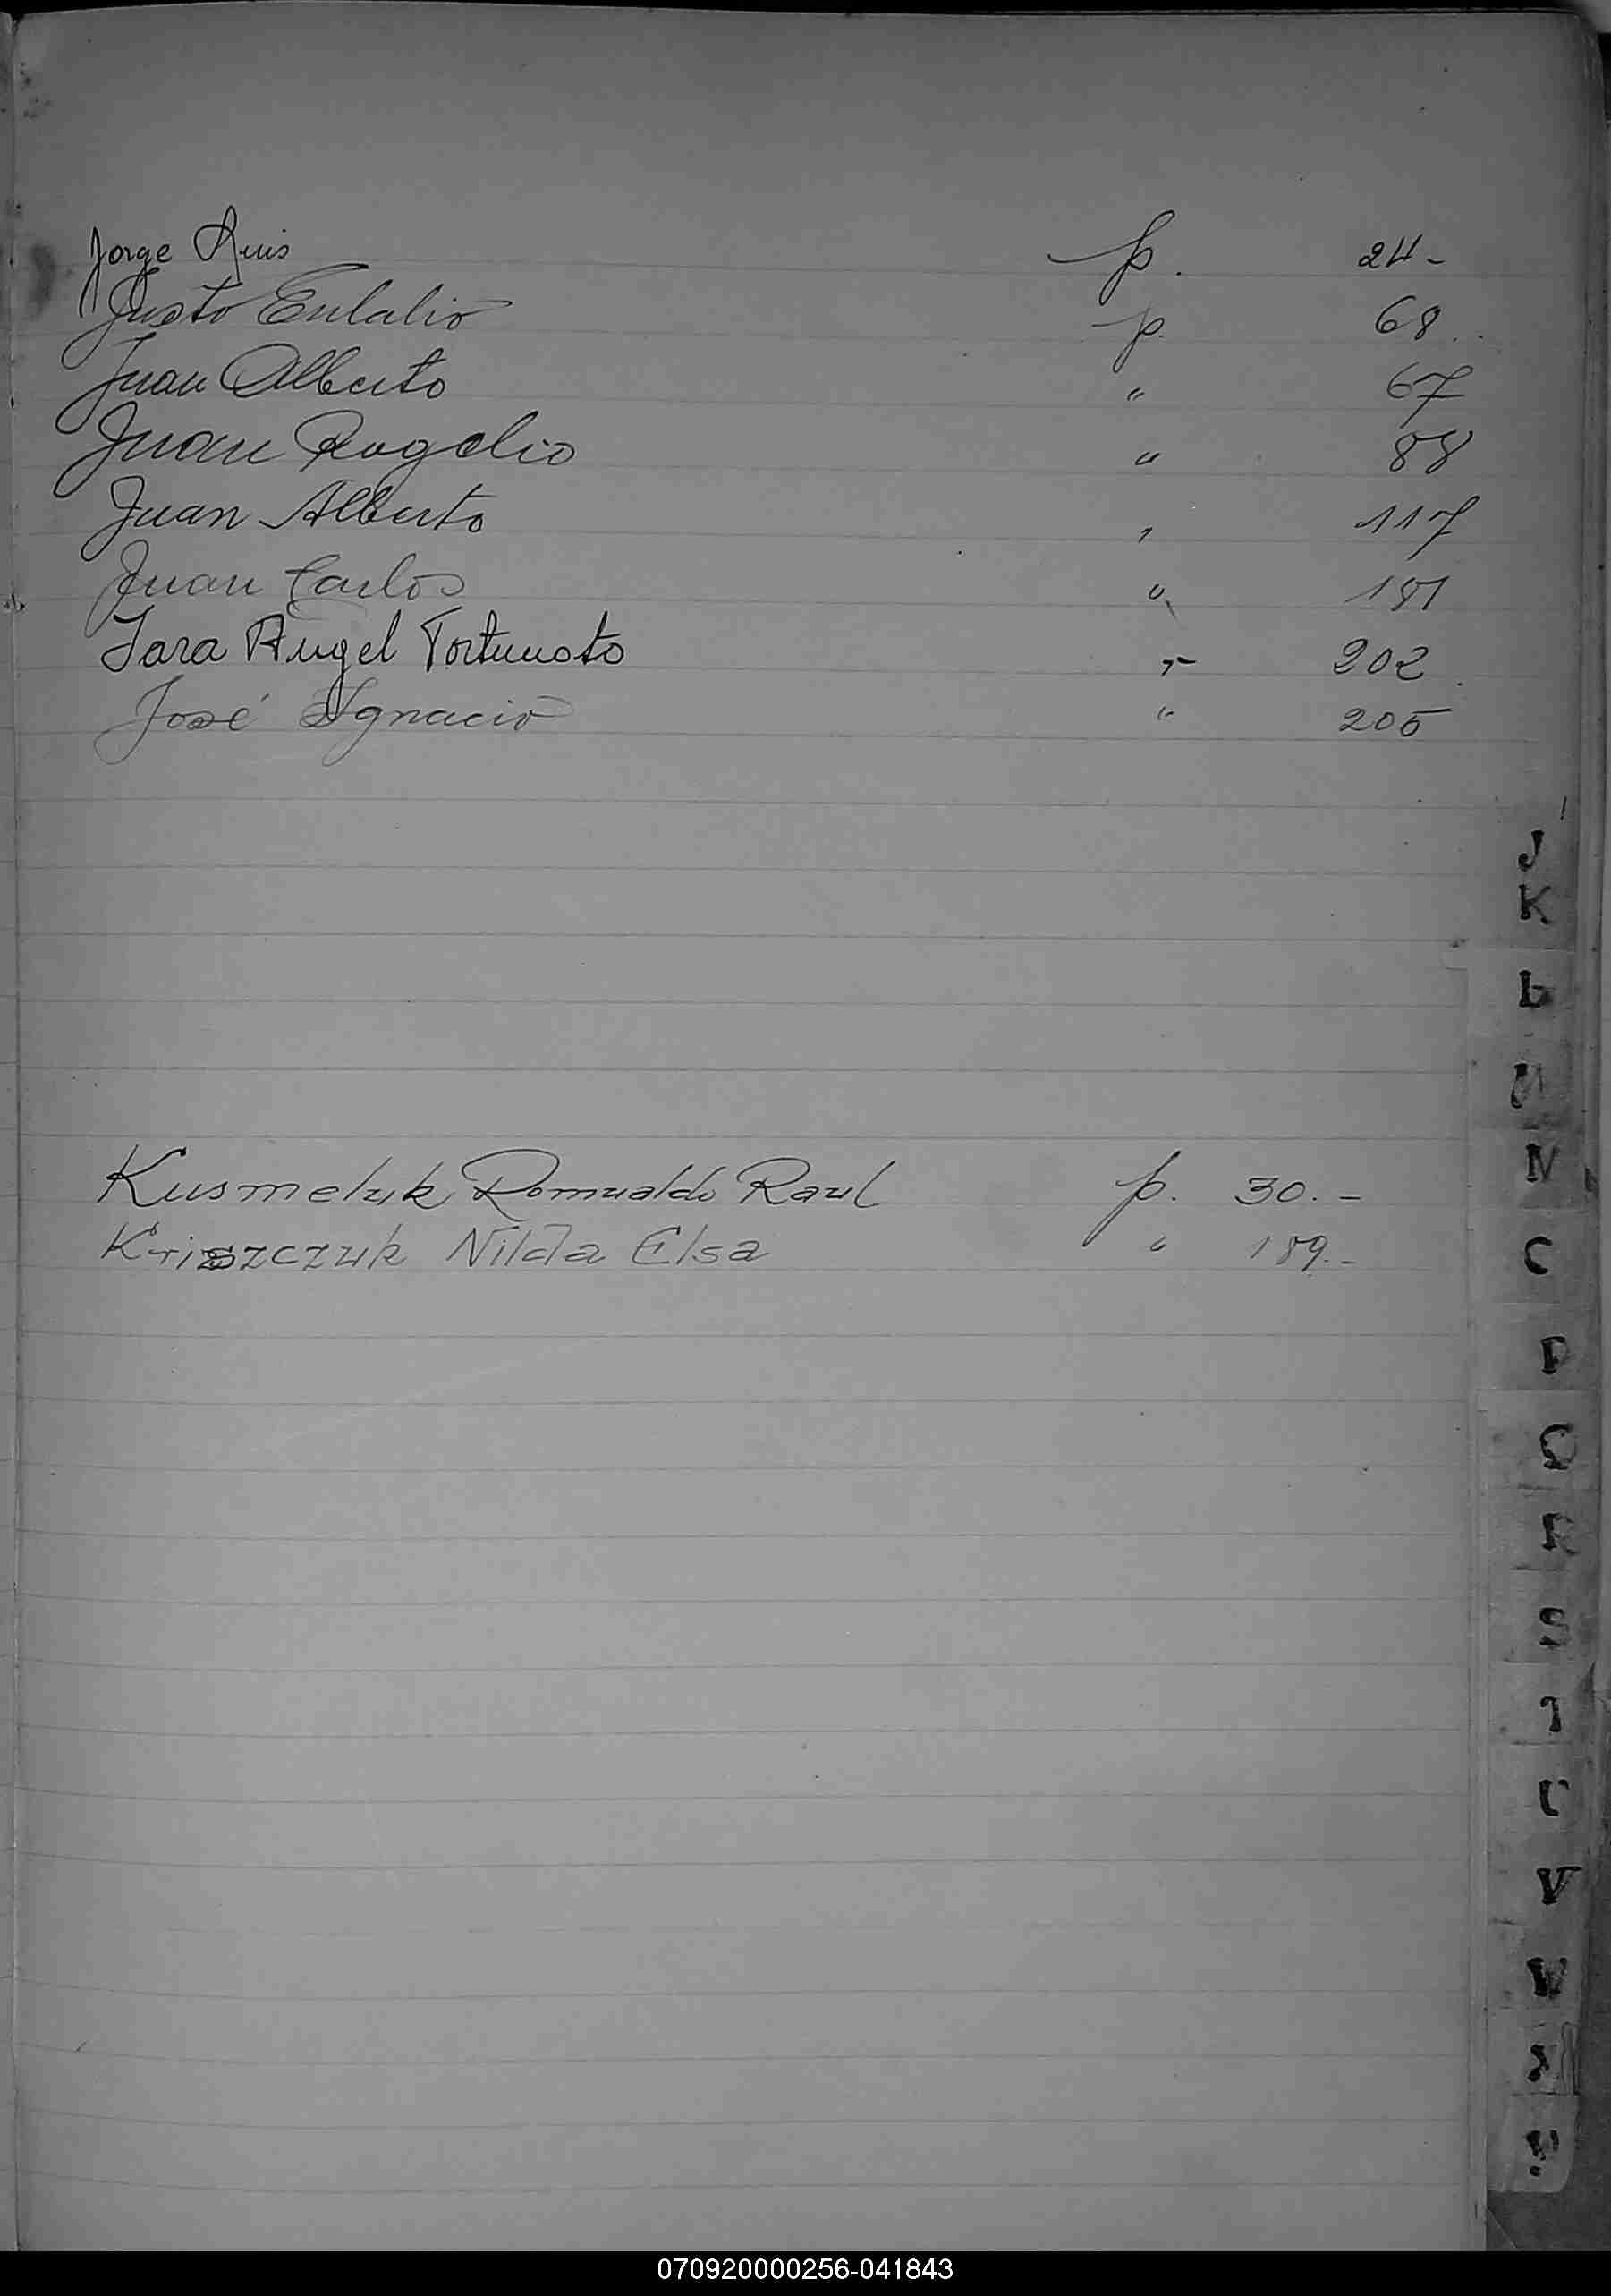 Jorge Luis p. 24-
Justo Eulalio p. 68
Juan Alberto " 67
Juan Rogelio " 88
Juan Alberto " 117
Juan Carlos " 181
Jara Angel Fortunato " 202
José Ignacio " 205
J
K
L
M
N
Kusmeluk Romualdo Raul p. 30.-
Kriszczuk Nilda Elsa " 189.-
O
P
Q
R
S
T
U
V
W
X
070920000256-041843